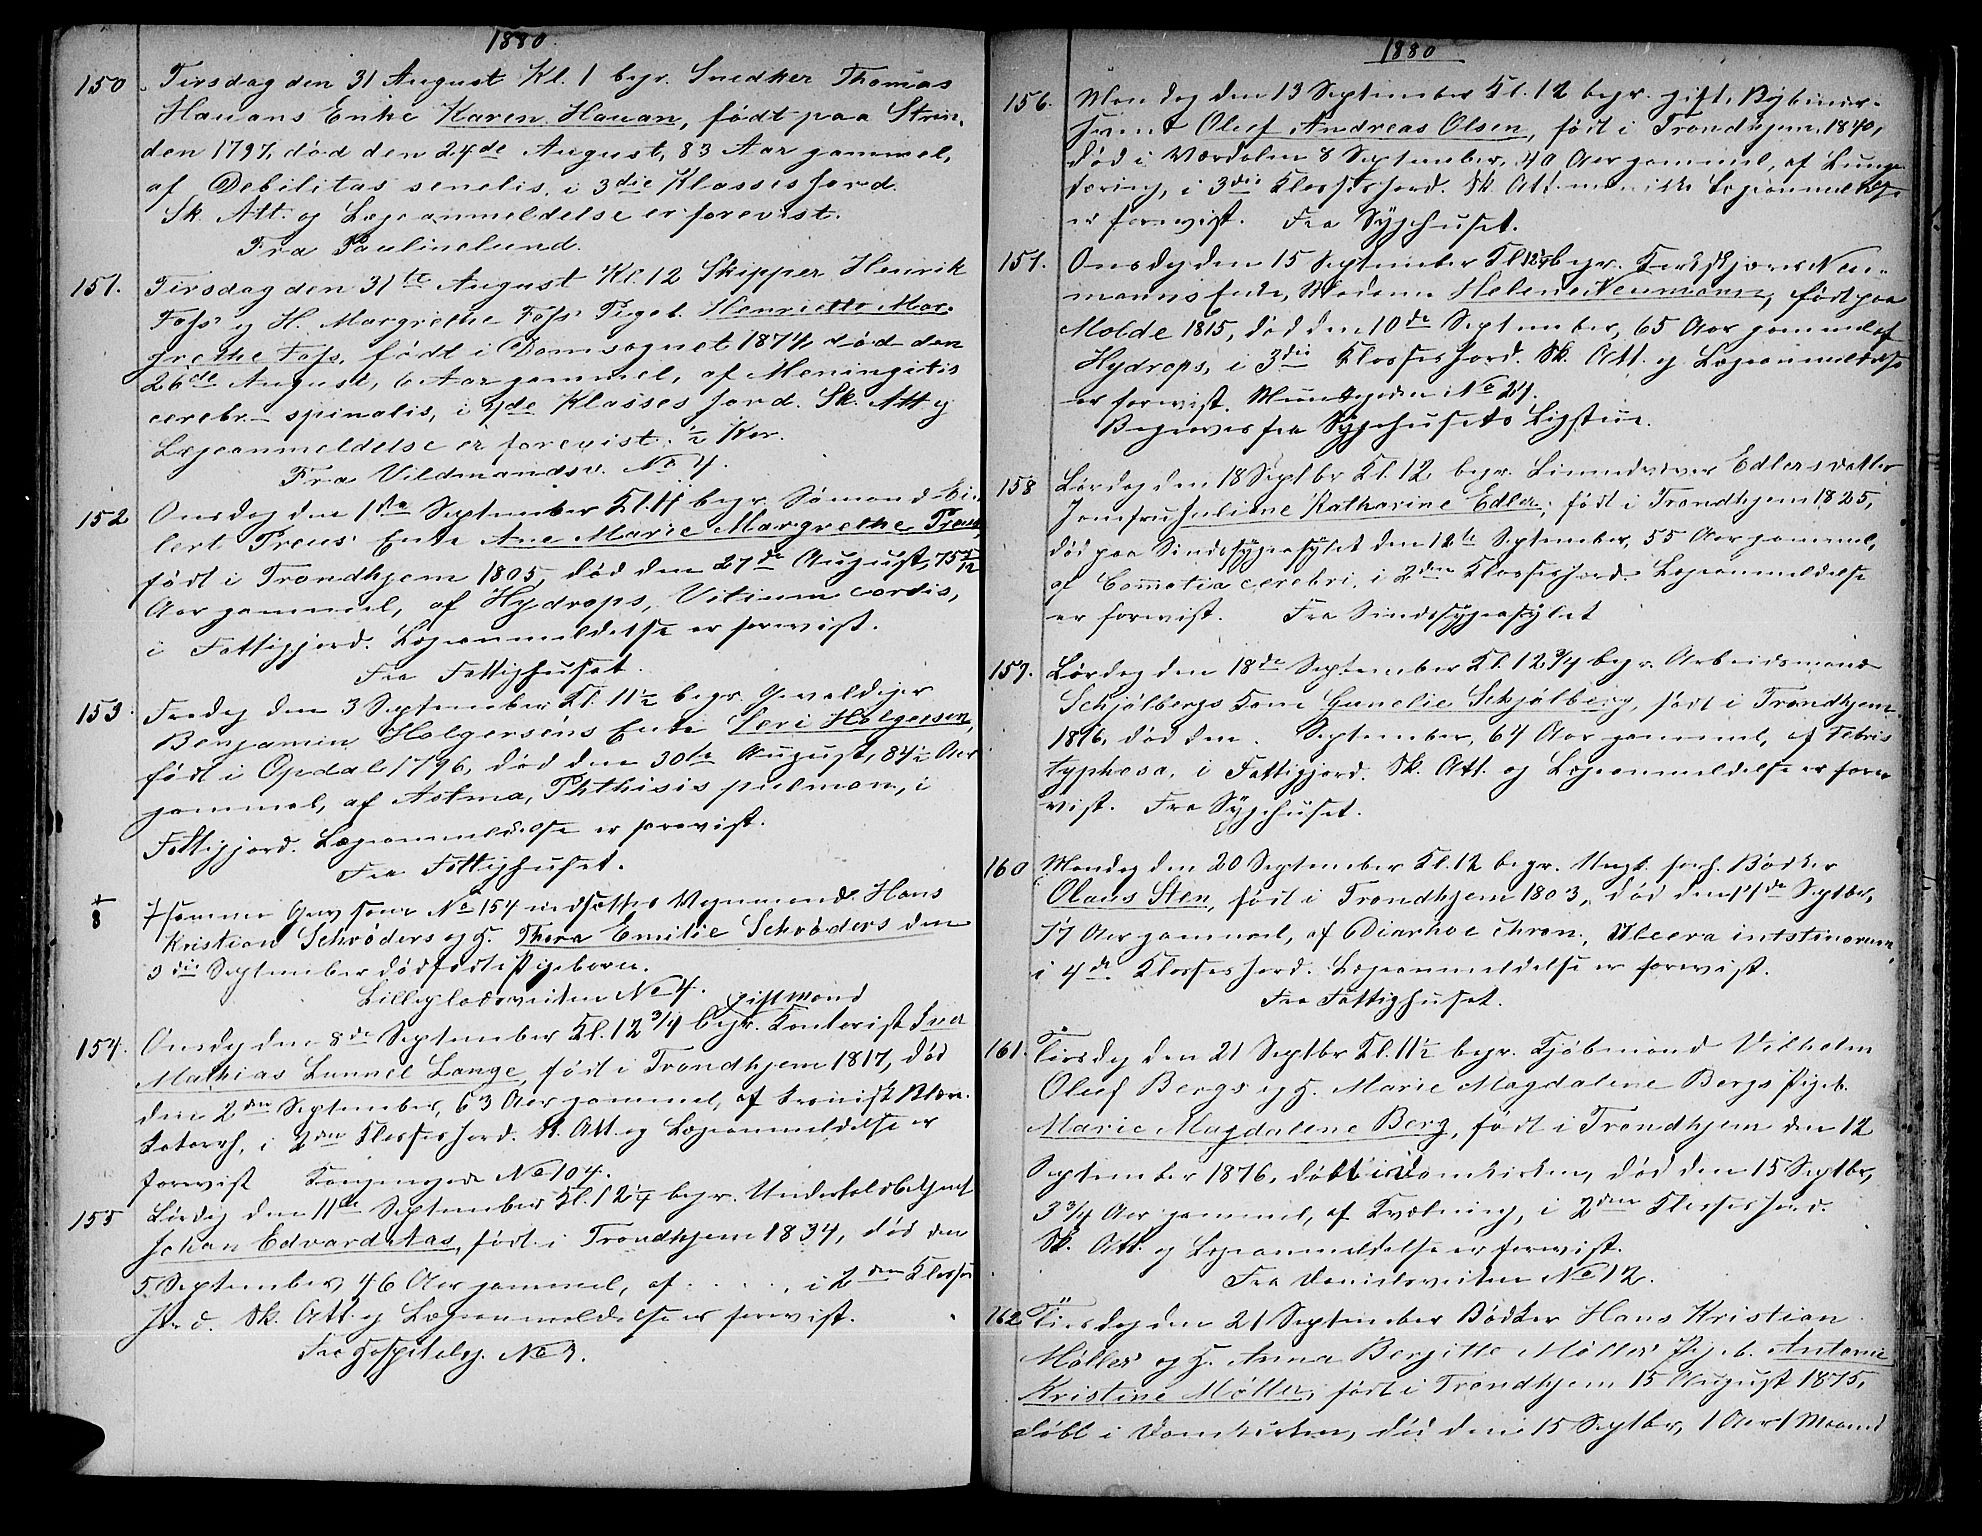 1880
150. Tirsdag den 31 August Kl. 1 begr. Snedker Thomas
Hauans Enke Karen Hauan, født paa Strin-
den 1797, død den 24de August, 83 Aar gammel,
af Debilitas senelis, i 3die Klasses Jord.
Sk. Att. og Lægeanmeldelse er forevist.
Fra Paulinelund.
151. Tirsdag den 31te August Kl. 12 Skipper Henrik
Foss' og H. Margrethe Foss' Pigeb. Henriette Mar-
grethe Foss, født i Domsognet 1874, død den
26de August, 6 Aar gammel, af Meningitis
cerebr. spinalis, i 4de Klasses Jord. Sk. Att og
Lægeanmeldelse er forevist. ½ Kor.
Fra Vildmandsv. No 4.
152 Onsdag den 1ste September Kl. 11 begr. Sømand Ei-
lert Preus' Enke Ane Marie Margrethe Preus,
født i Trondhjem 1805, død den 27de August, 75
Aar gammel, af Hydrops, Vitium cordis,
i Fattigjord. Lægeanmeldelse er forevist.
Fra Fattighuset.
153. Fredag den 3 September Kl. 11½ begr. Gevaldiger
Benjamin Holgersens Enke Seri Holgersen,
født i Opdal 1796, død den 30te August, 84½ Aar
gammel, af Astma, Phthisis pulmon., i
Fattigjord. Lægeanmeldelse er forevist.
Fra Fattighuset.
I samme Grav som No 154 nedsattes Vognmand Hans
Kristian Schrøders og H. Thora Emilie Schrøders den
3die September dødfødte Pigebarn.
Lillegladsveiten No 4.
gift mand
154. Onsdag den 8de September Kl. 12¾ begr. Kontorist
Mathias Lunnel Lange, født i Trondhjem 1817, død
den 2den September, 63 Aar gammel, af kronisk Blære-
katarrh, i 2den Klasses Jord. Sk. Att og Lægeanmeldelse er
forevist Kongensgade No 104.
155 Lørdag den 11te September Kl. 12¼ begr. Underholdsbetjent
Johan Edvard Aas, født i Trondhjem 1834, død den
5 September, 46 Aar gammel, af . . . . , i 2den Klasses
Jord. Sk. Att. og Lægeanmeldelse er forevist.
Fra Hospitalsg. No 3.
1880
156. Mandag den 13 September Kl. 12 begr. gift
Oluf Andreas Olsen, født i Trondhjem 1840,
død i Værdalen 8 September, 40 Aar gammel, af Lunge-
tæring, i 3die Klasses Jord. Sk. Att. Lægeanmeldelse
er forevist. Fra Sygehuset.
157. Onsdag den 15 September Kl 12¼ begr. Neu-
manns Enke, Madame Helene Neumann, født paa
Molde 1815, død den 10de September, 65 Aar gammel af
Hydrops, i 3die Klasses Jord. Sk. Att. og Lægeanmeldelse
er forevist. Munkegaden No 24.
Begraves fra Sygehusets Ligstue.
158 Lørdag den 18 Septbr Kl. 12 begr. Linnedvæver Edlers datter
Jomfru Juliane Katharine Edler, født i Trondhjem 1825,
død paa Sindssygeasylet den 12te September, 55 Aar gammel,
af Commotia cerebri, i 2den Klasses Jord. Lægeanmeldelse
er forevist. Fra Sindssygeasylet
159. Lørdag den 18de September Kl. 12¾ begr. Arbeidsmand
Schjølbergs Kone Gunelie Schjølberg, født i Trondhjem
1816, død den . September, 64 Aar gammel, af Febris
typhosa, i Fattigjord. Sk. Att. og Lægeanmeldelse er fore-
vist. Fra Sygehuset.
160 Mandag den 20 September Kl. 12 begr. Ungk. forh. Bødker
Olaus Sten, født i Trondhjem 1803, død den Septbr,
77 Aar gammel, af Diarhoe chron., Ulcera intstinorum,
i 4de Klasses Jord. Lægeanmeldelse er forevist.
Fra Fattighuset.
161. Tirsdag den 21 Septbr Kl. 11½ begr. Kjøbmand Vilhelm
Oluf Bergs og H. Marie Magdalene Bergs Pigeb.
Marie Magdalene Berg, født i Trondhjem den 12
September 1876, døbt i Domkirken, død den 15 Septbr,
3¾ Aar gammel, af Kvælning, i 2den Klasses Jord.
Sk. Att. og Lægeanmeldelse er forevist.
Fra Danielsveiten No 12.
162 Tirsdag den 21 September Bødker Hans Kristian
Møllers og H. Anna Bergitte Møllers Pigeb. Antonie
Kristine Møller, født i Trondhjem 15 August 1875,
døbt i Domkirken, død den 15 Septbr, 1 Aar 1 Maaned